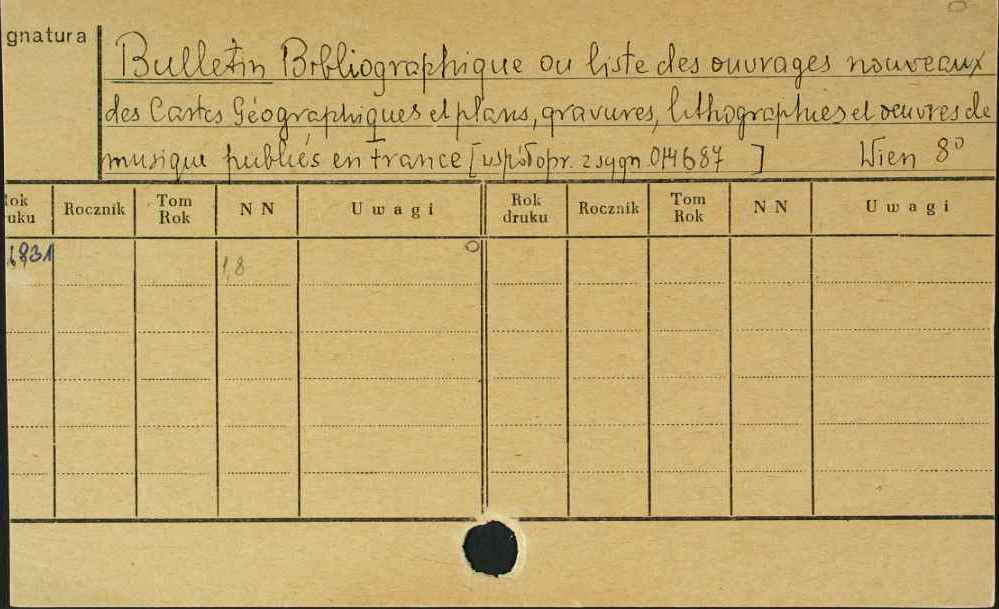 gnatura
Bulletin Bibliographique ou liste des ouvrages nouveaux
des Cartes Géographiques et plans, gravures, lithographies et oeuvres de
musique publiés en France [współopr. z sygn. 014687 ] Wien 8°
Rok druku Rocznik Tom Rok N N Uwagi Rok druku Rocznik Tom Rok N N Uwagi
1831 1,8